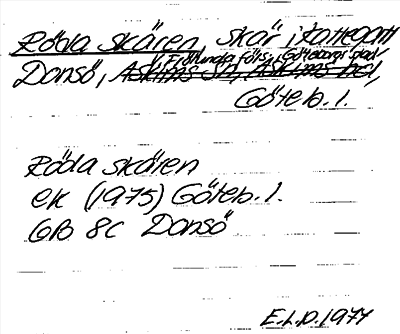 Röda skären, skär i Kattegatt
V. Frölunda förs., Göteborgs stad
Donsö, Askims sn, Askims hd,
Göteb. l.
Röda skären
ek (1975) Göteb. l.
GB 8C Donsö
E.L.D. 1977